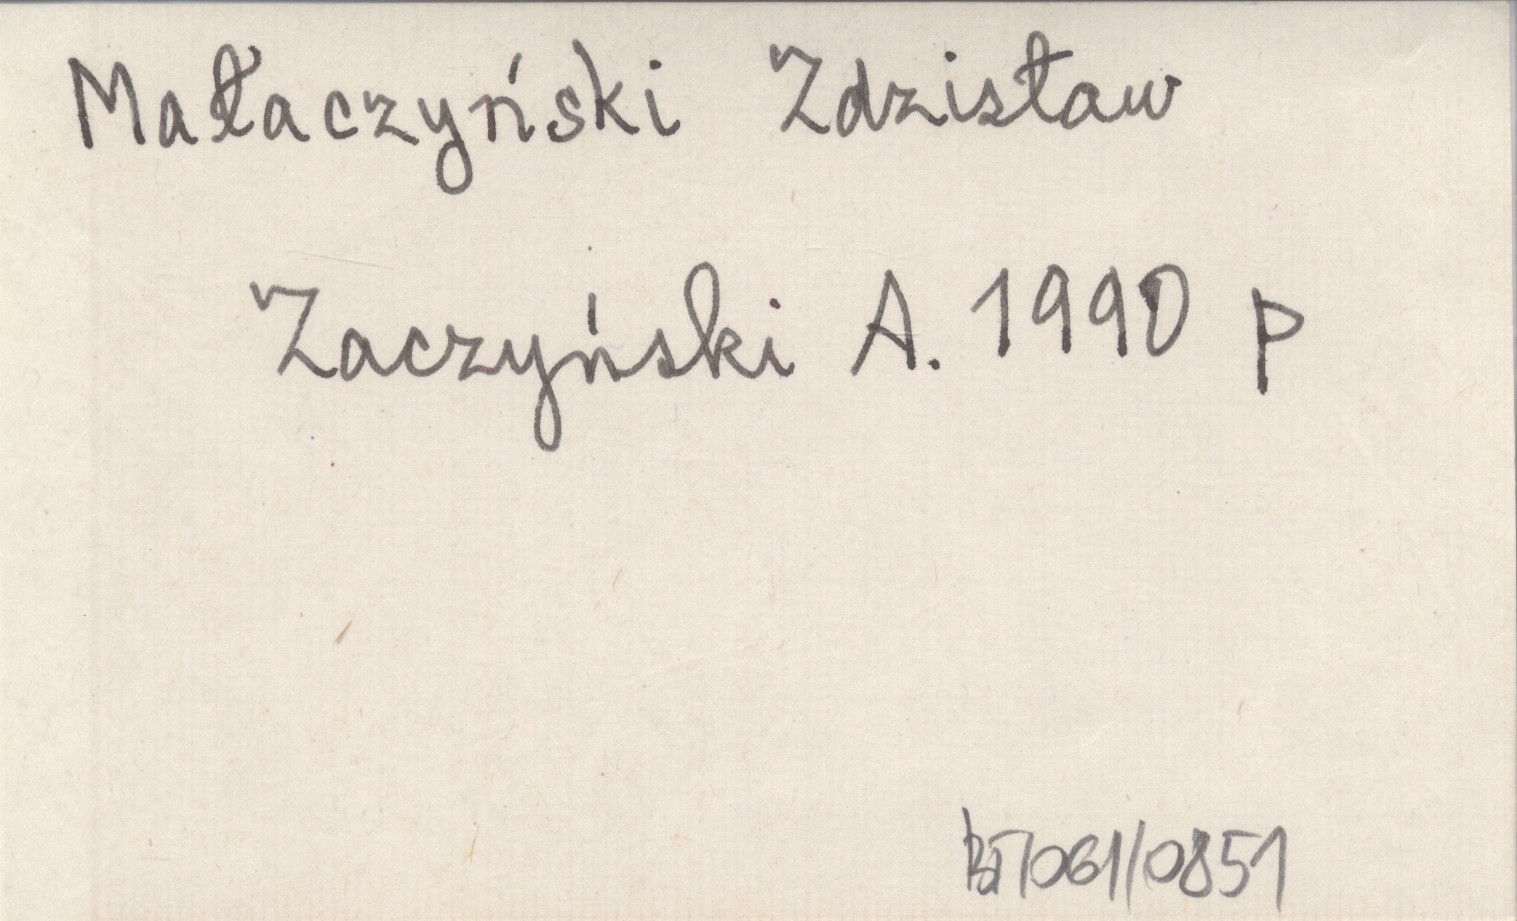 Małaczyński Zdzisław
Zaczyński A. 1990 p
061/0851